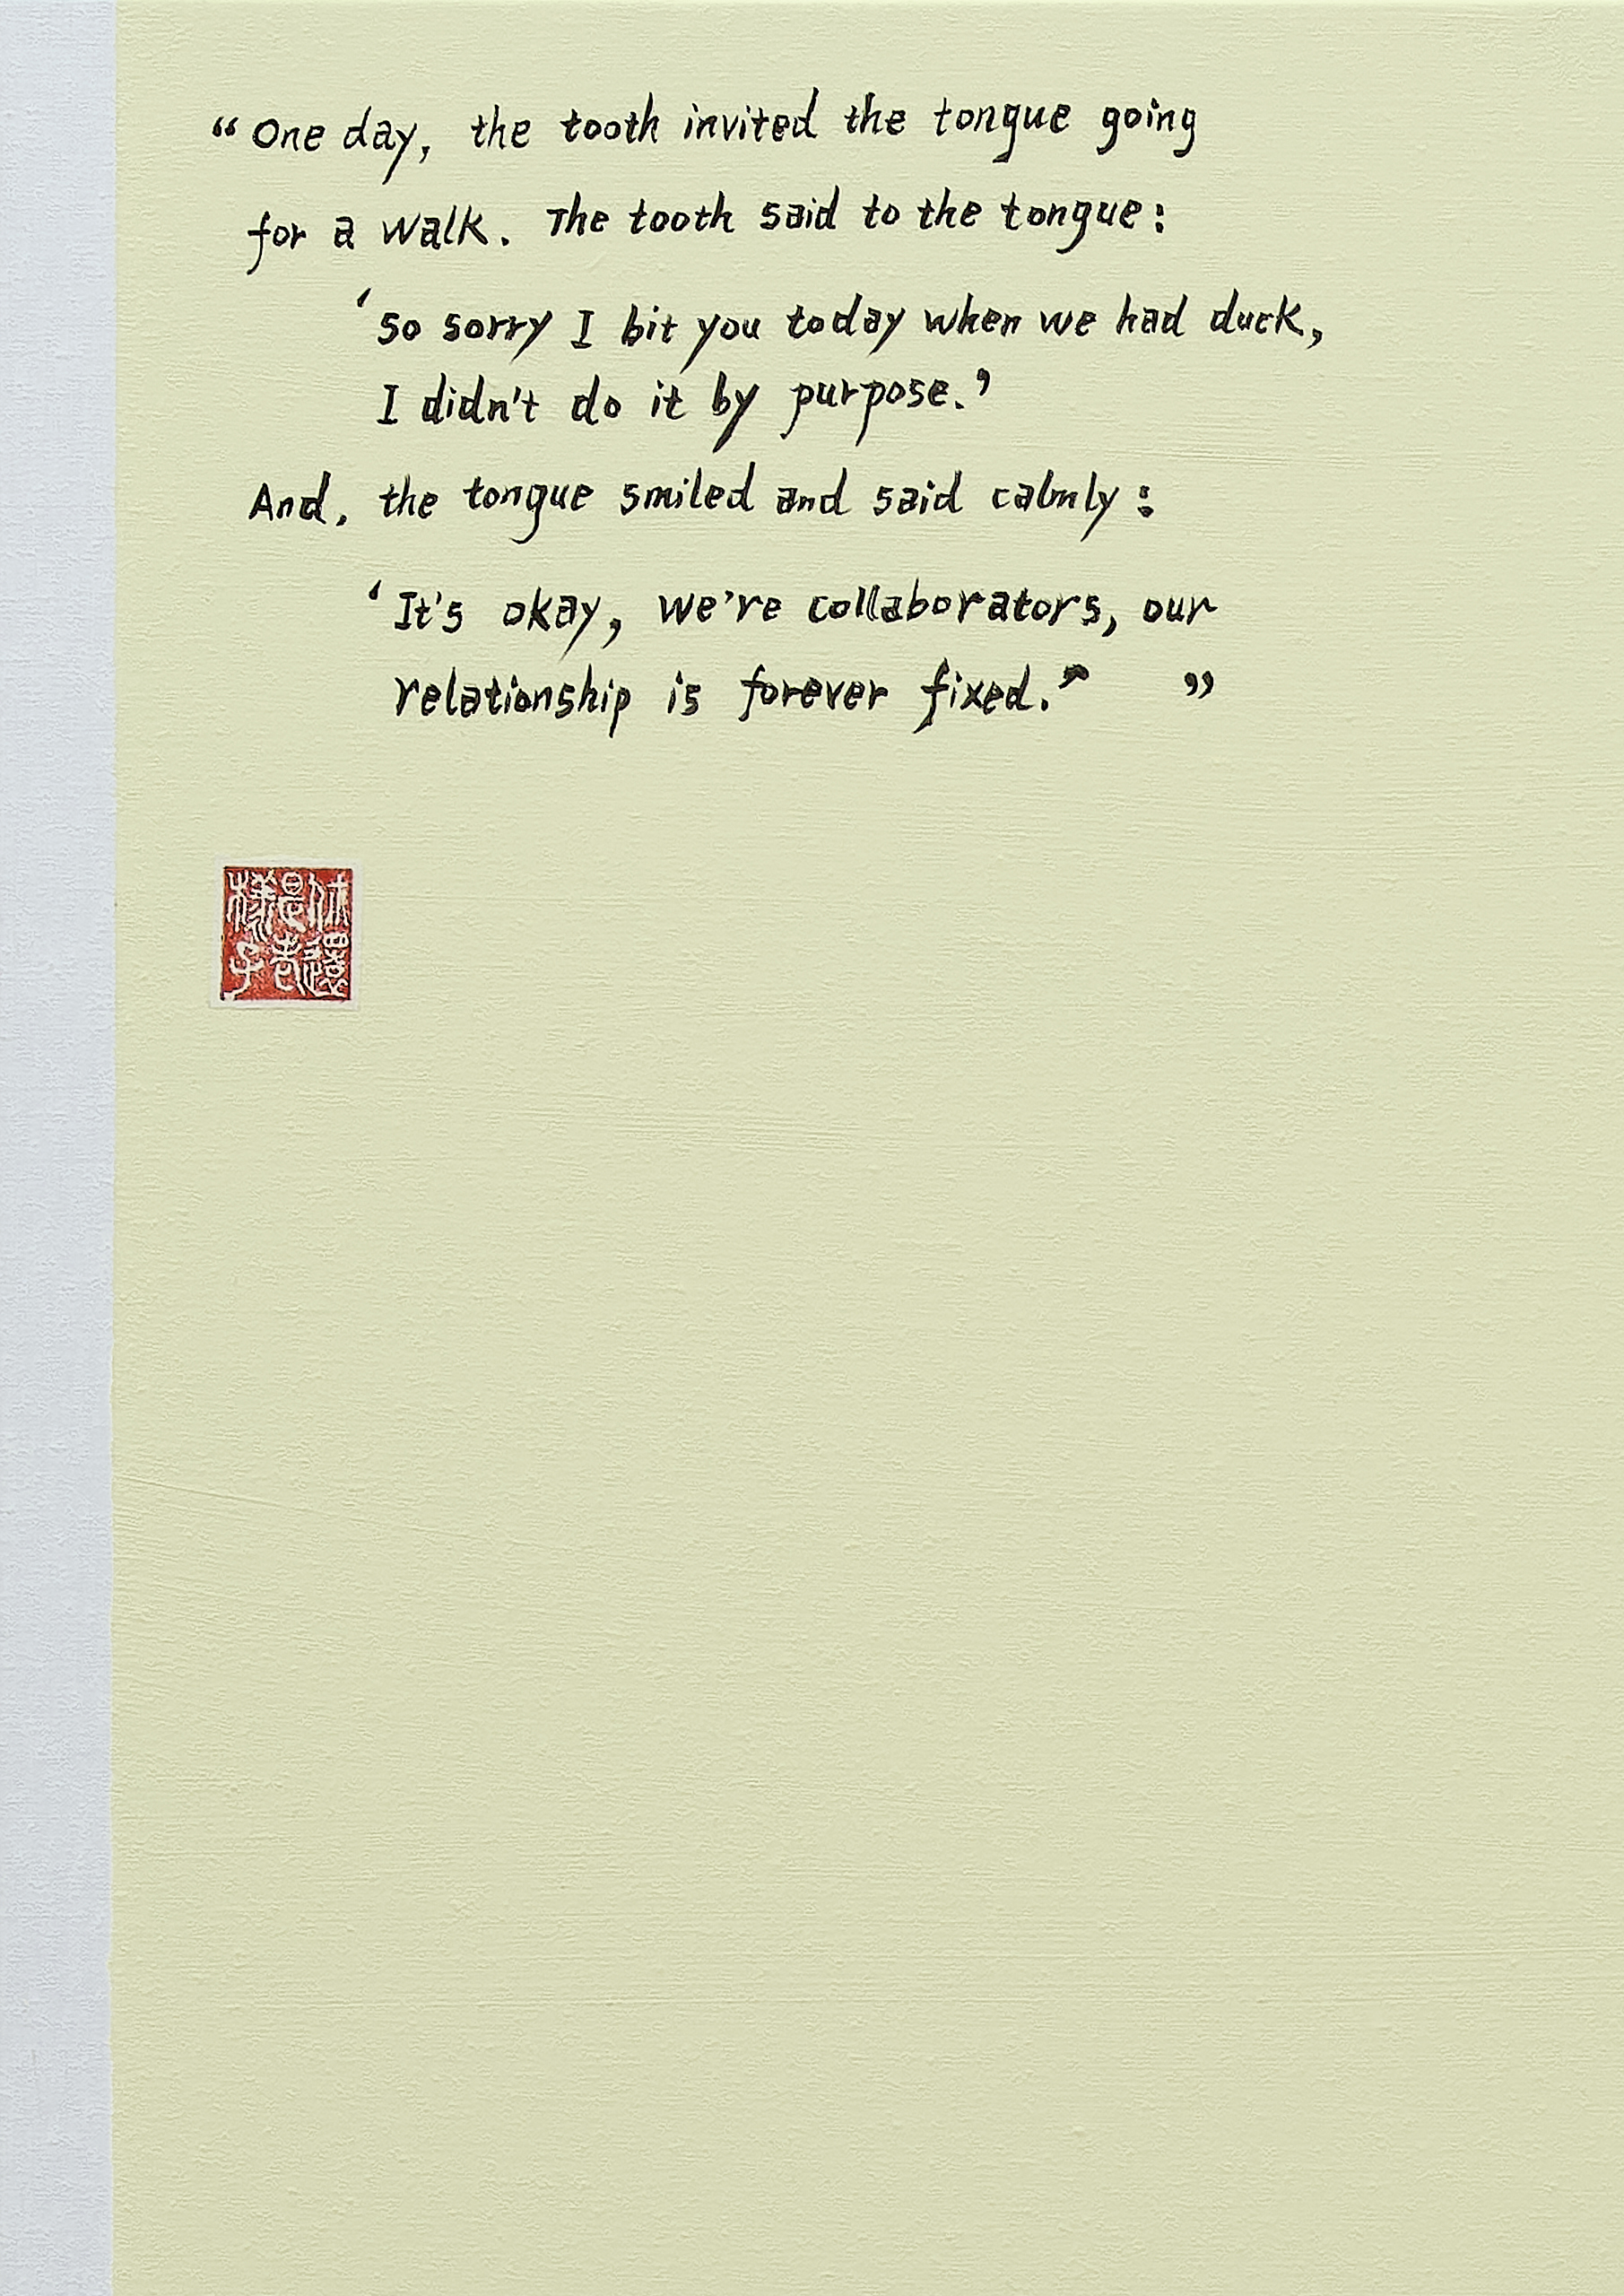 “One day, the tooth invited the tongue going
for a walk. The tooth said to the tongue:
‘So sorry I bit you today when we had duck,
I didn't do it by purpose.’
And, the tongue smiled and said calmly:
‘It's okay, we're collaborators, our
relationship is forever fixed.’ ”
你還
是老
樣子